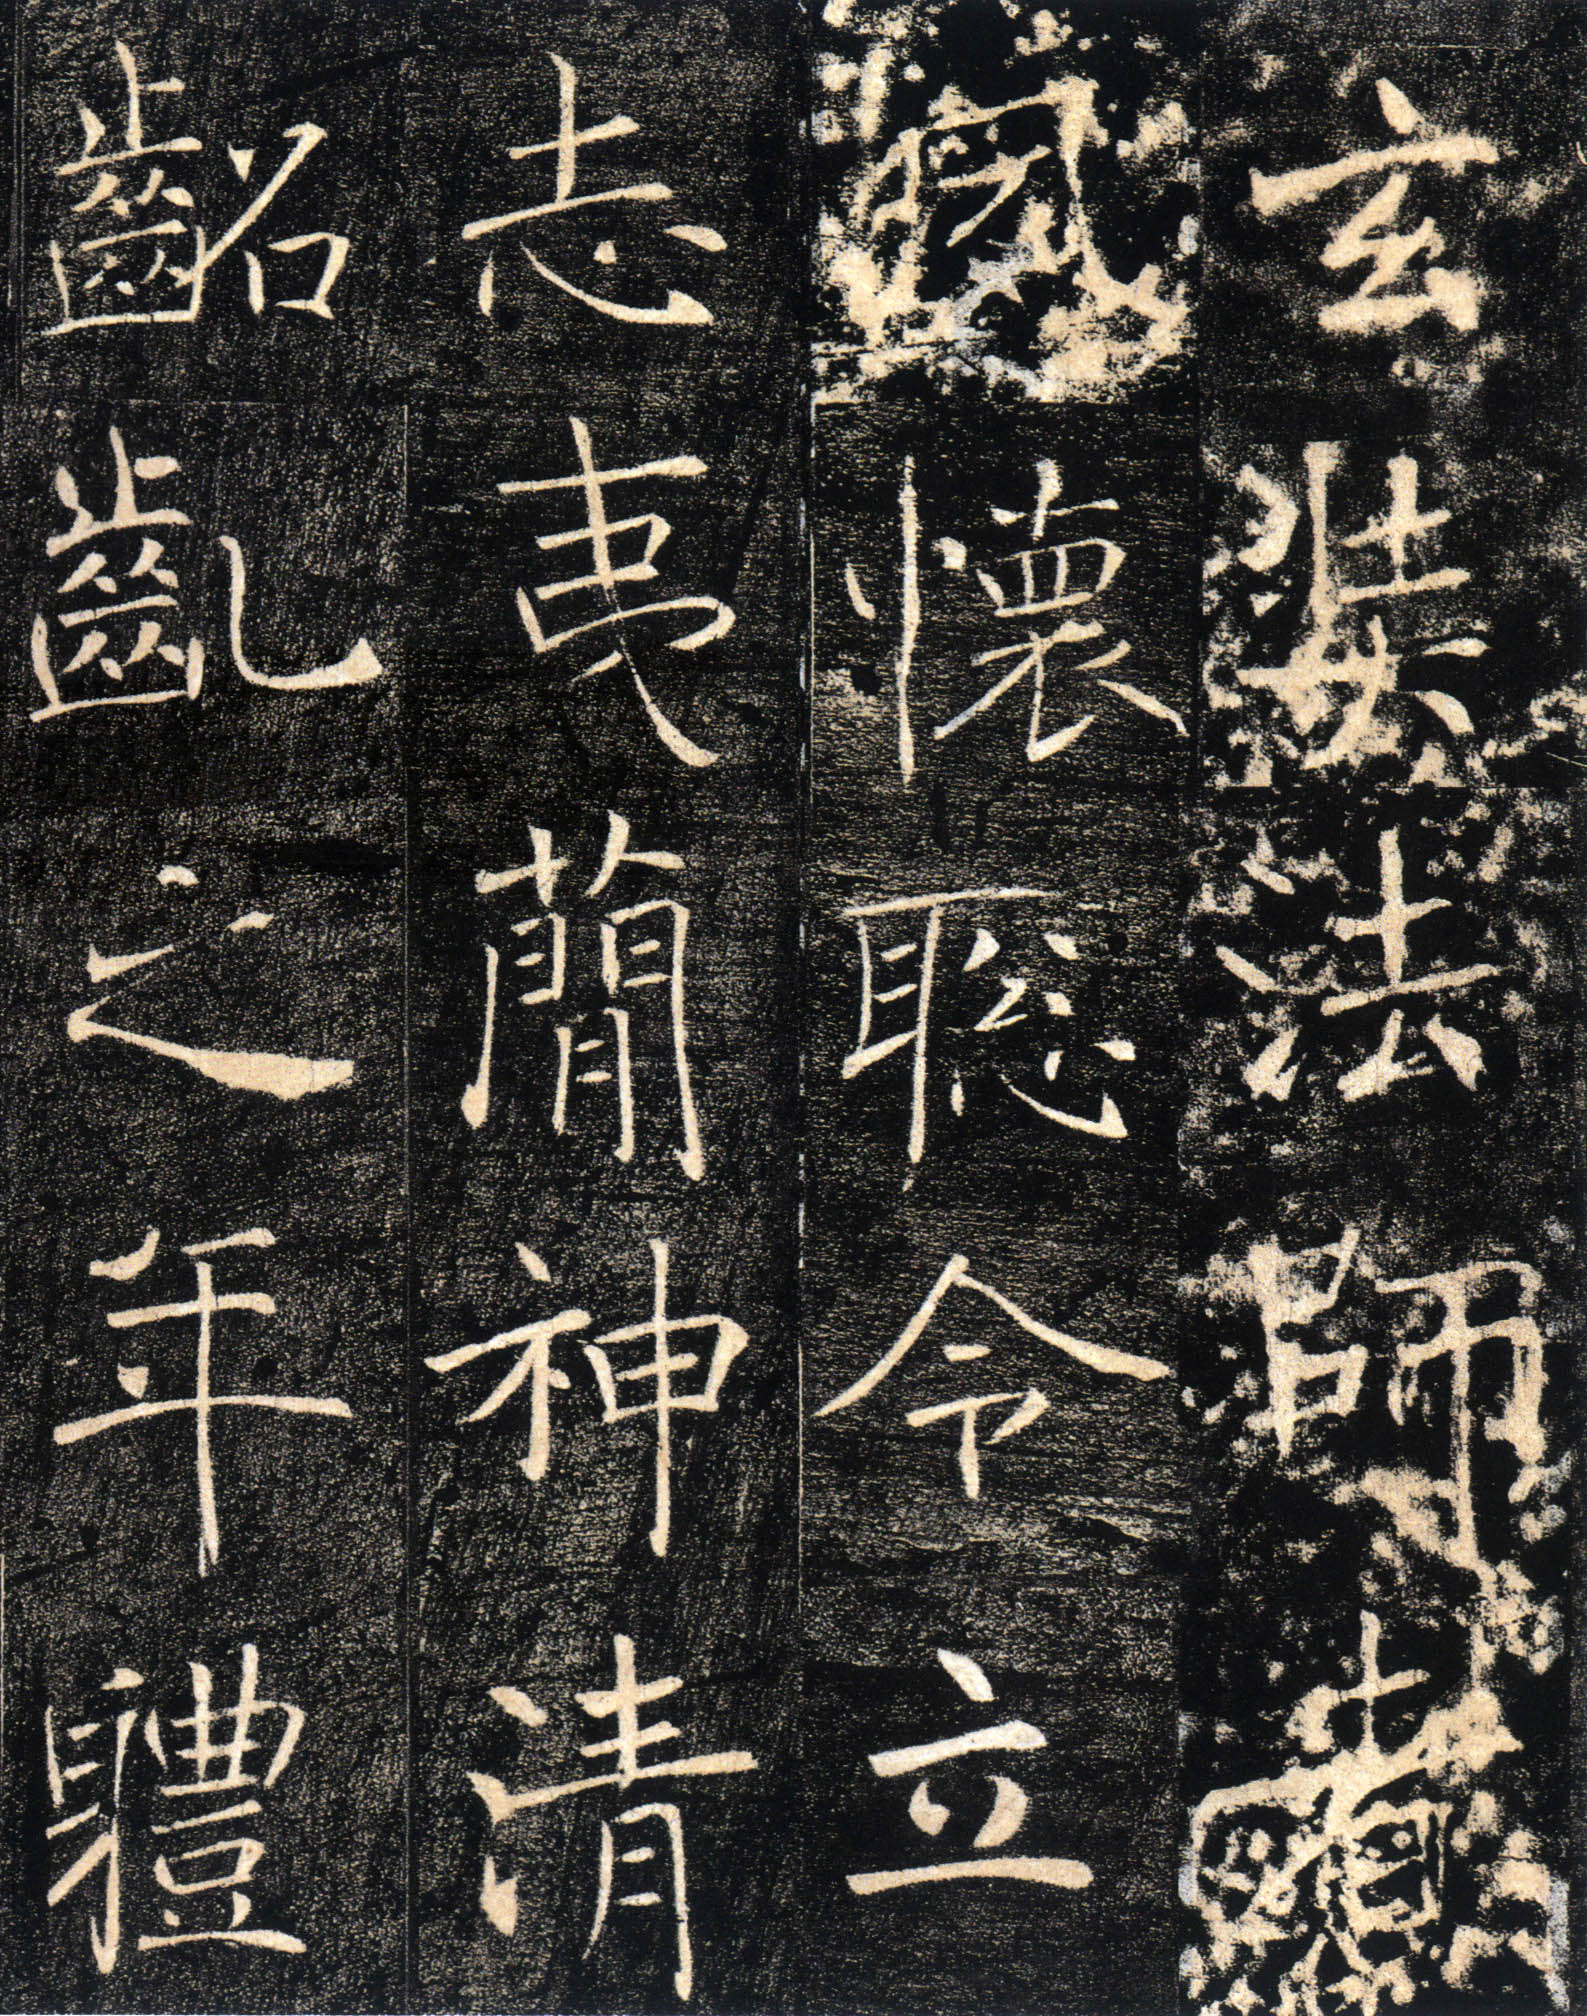 玄奘法師者
夙懷聰令立
志夷簡神清
齠齔之年體